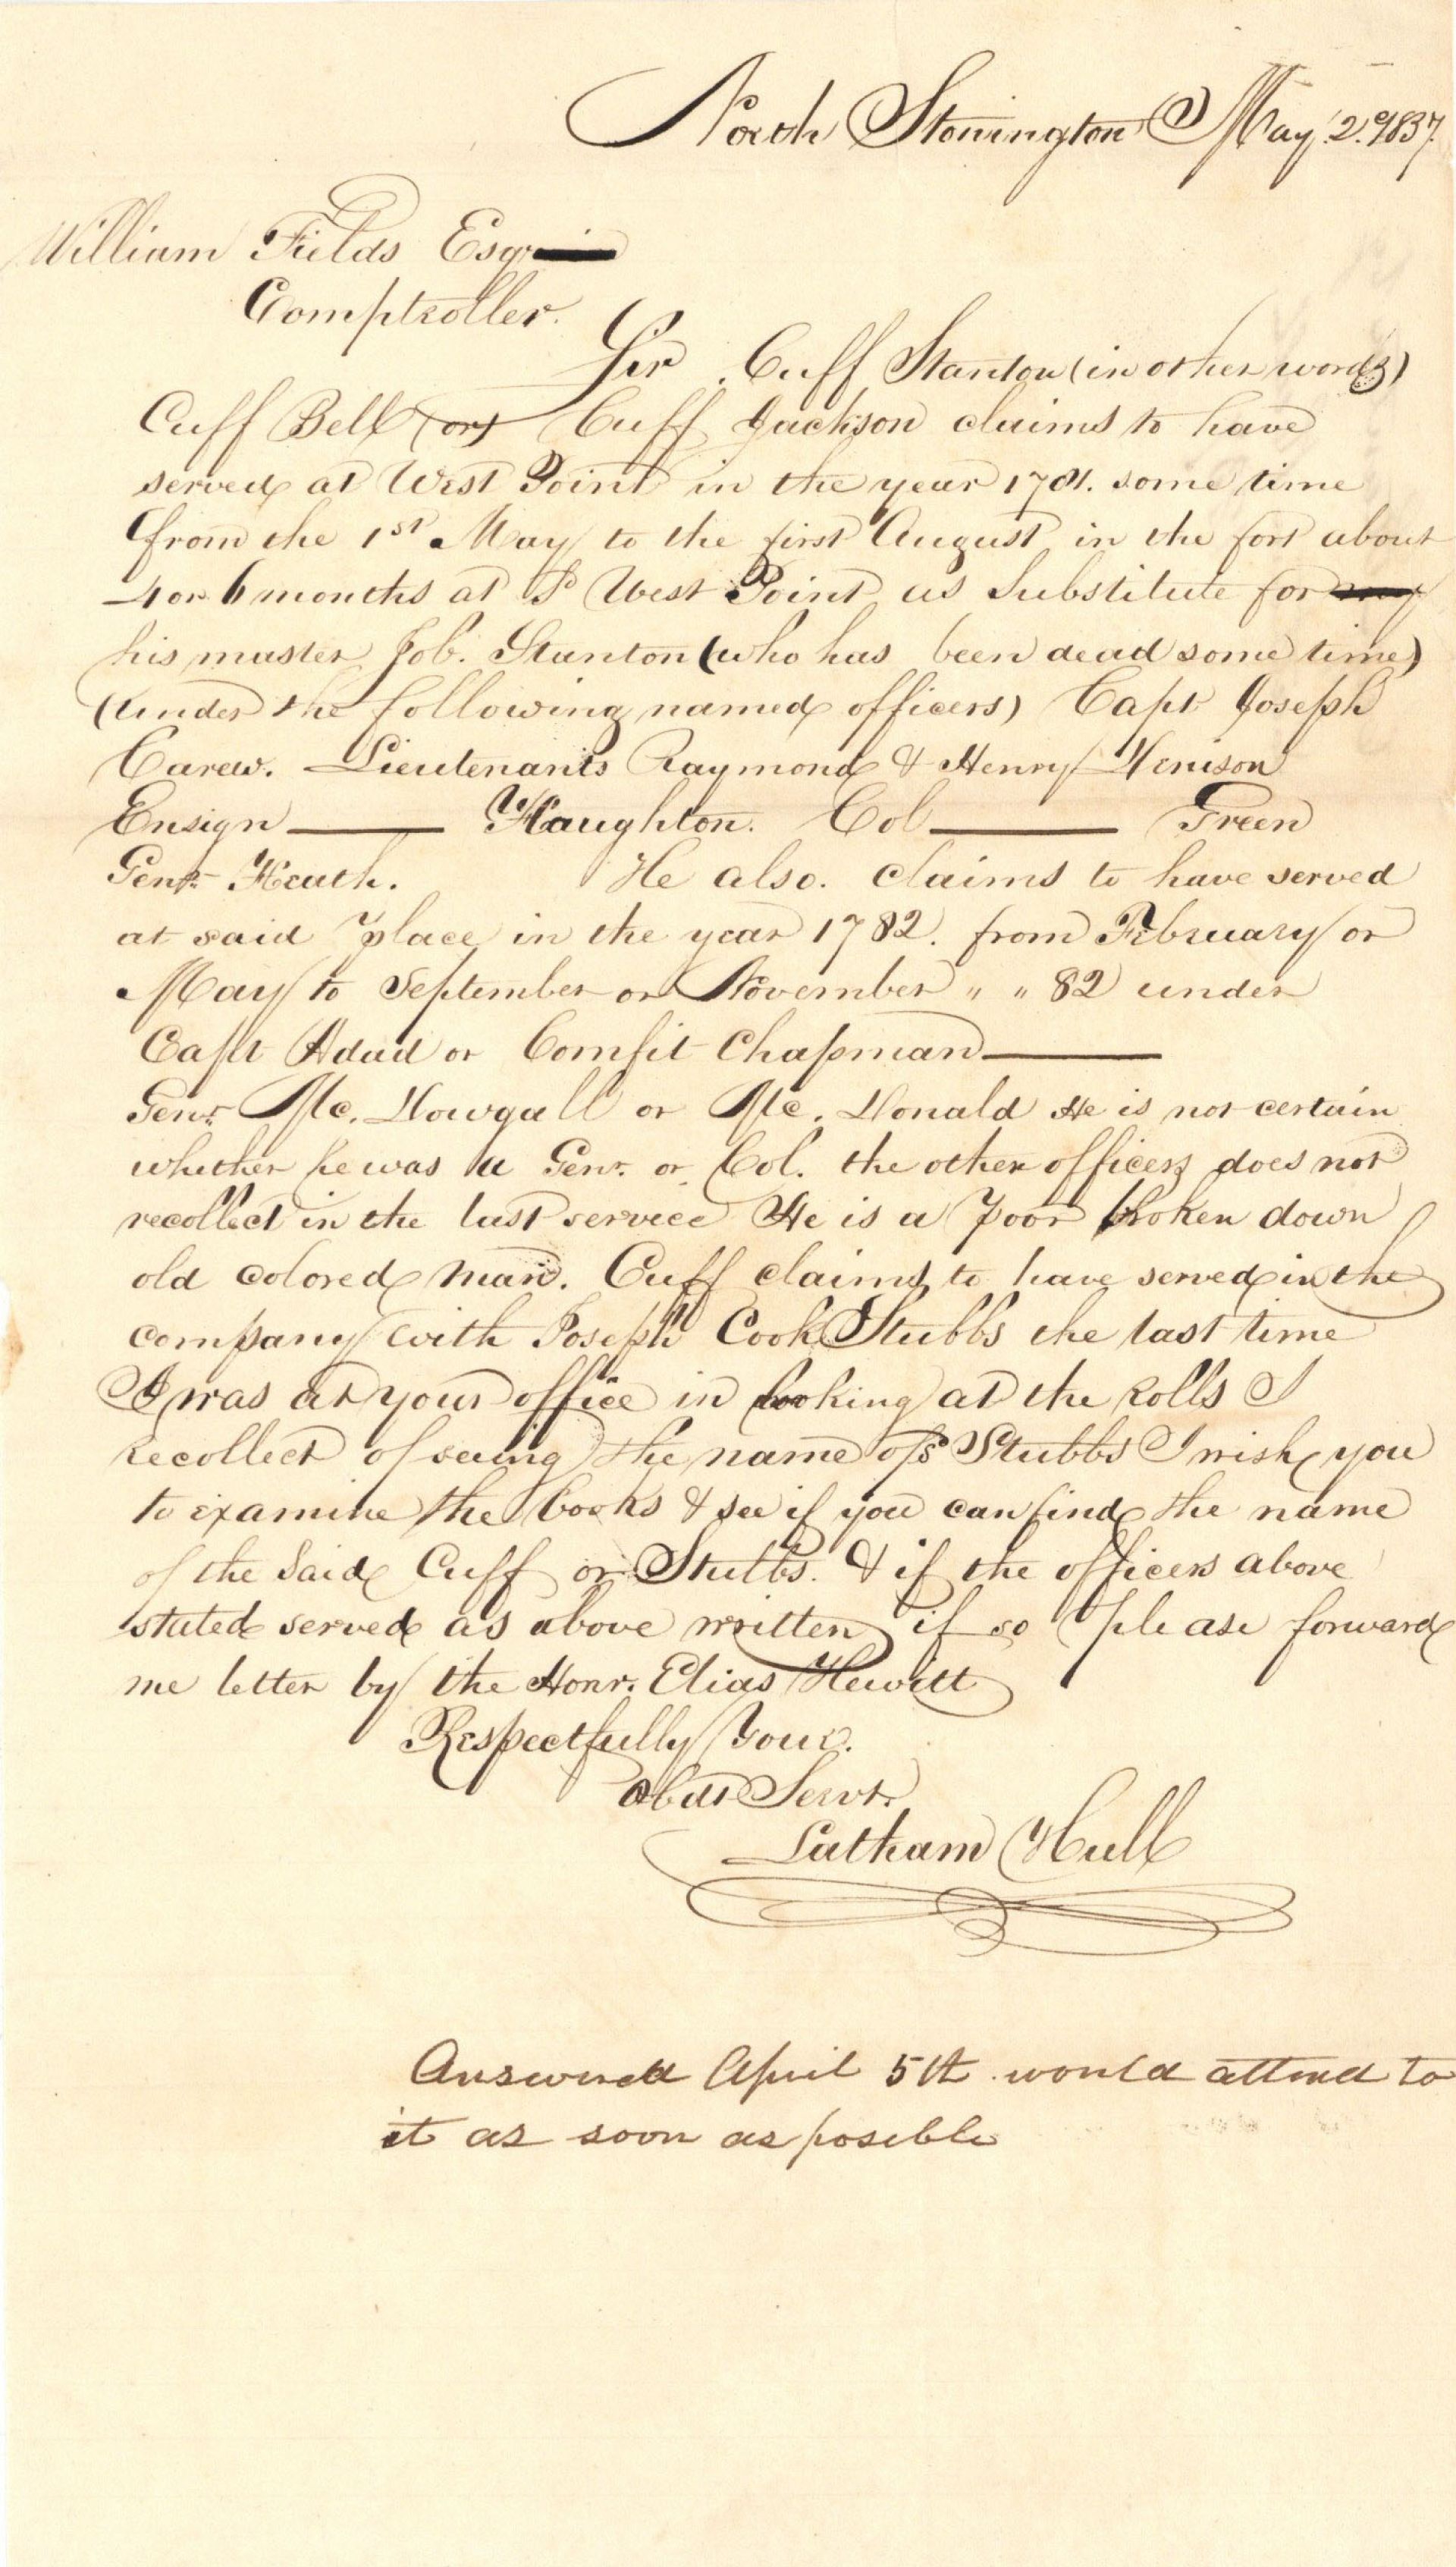 North Stonington May 2d 1837.
William Fields Esqr
Comptroller.
Sir . Cuff Stanton (in other words)
Cuff Bell (or) Cuff Jackson claims to have
served at West Point in the year 1781. some time
from the 1st May to the first August in the fort about
4 or 6 months at Sd West Point as Substitute for
his master Job. Stanton (who has been dead some time)
(under the following named officers) Capt Joseph
Carew. Lieutenants Raymond & Henry Denison
Ensign ——— Haughton. Col ——— Green
Genr. Heath. He also. claims to have served
at said place in the year 1782. from February or
May to September or November " " 82 under
Capt Adad or Comfit Chapman ———
Genr. Mc. Dowgall or Mc. Donald He is not certain
whether he was a Genr. or Col. the other officers does not
recollect in the last service He is a Poor broken down
old colored man. Cuff claims to have served in the
company with Joseph Cook Stubbs the last time
I was at your office in looking at the rolls I
recollect of seeing the name of Sd Stubbs I wish you
to examine the books & see if you can find the name
of the Said Cuff or Stubbs. & if the officers above
stated served as above written if so please forward
me letter by the Honr. Elias Hewitt
Respectfully Your.
obdt Servt.
Latham Hull
Answered April 5th would attend to
it as soon as posible